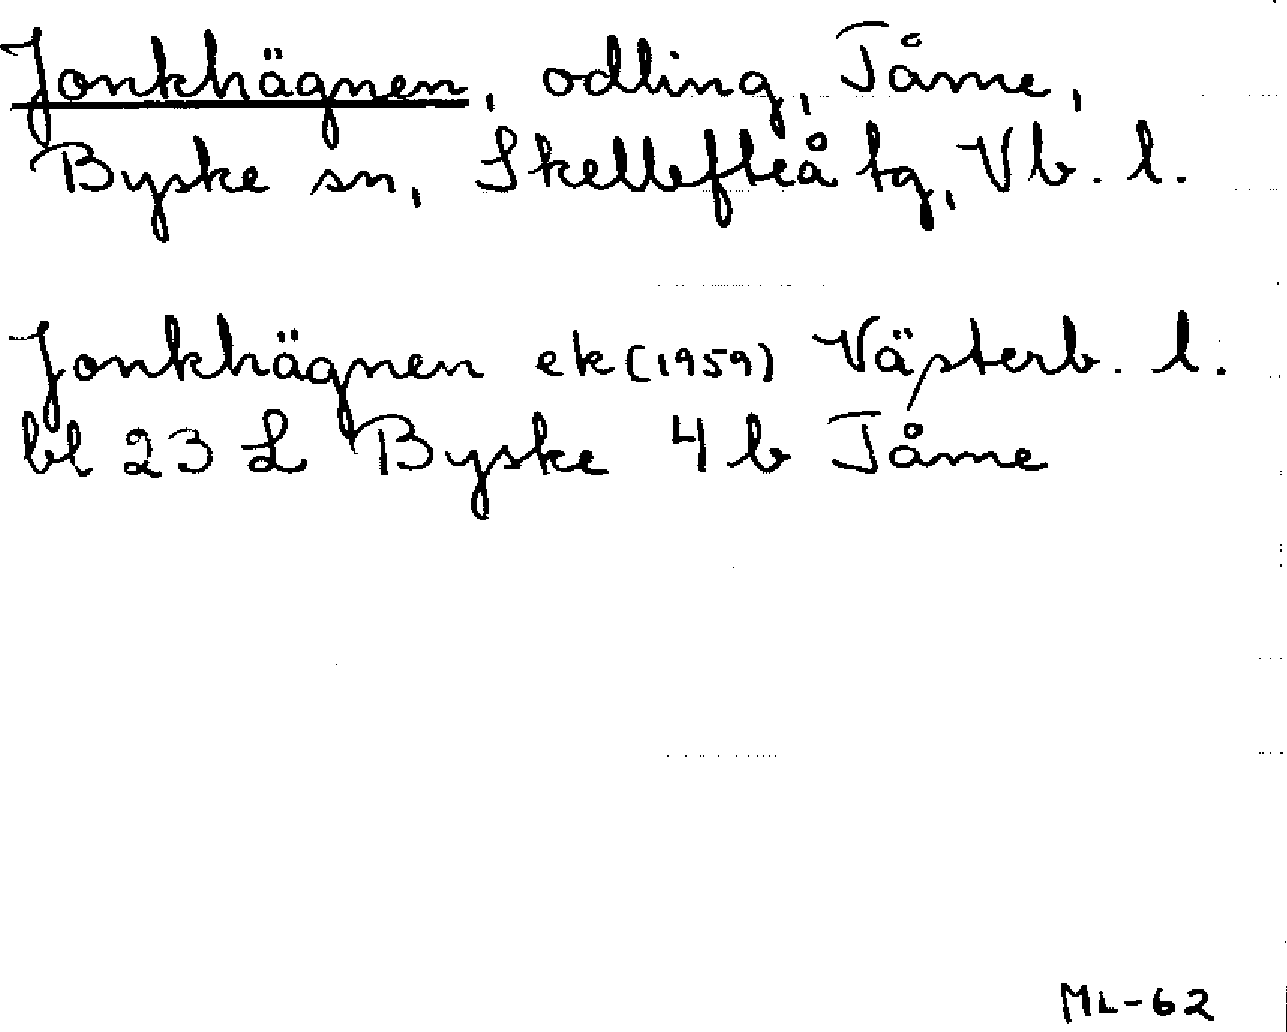 Jonkhägnen, odling, Tåme,
Byske sn, Skellefteå tg, Vb. l.
Jonkhägnen ek (1959) Västerb. l.
bl 23 L Byske 4 b Tåme
ML-62